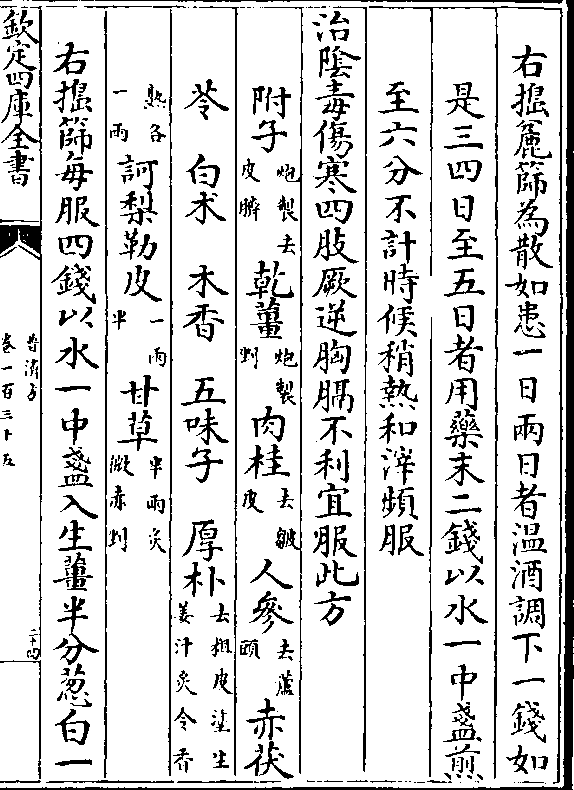 右搗麄篩為散如患一日兩日者温酒調下一錢如
是三四日至五日者用藥末二錢以水一中盞煎
至六分不計時候稍熱和滓頻服
治陰毒傷寒四肢厥逆胸膈不利宜服此方
附子炮製去皮臍 乾薑炮製剉 肉桂去皺皮 人參去蘆頭 赤茯
苓 白朮 木香 五味子 厚朴去粗皮塗生姜汁炙令香
熟各一兩 訶梨勒皮一兩半 甘草半兩炙微赤剉
右搗篩每服四錢以水一中盞入生薑半分葱白一
欽定四庫全書
普濟方
卷一百三十五
二十四